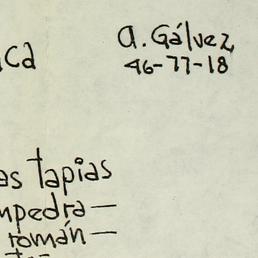 a. Gálvez
ica
46-77-18
as tapias
mpedra—
román—